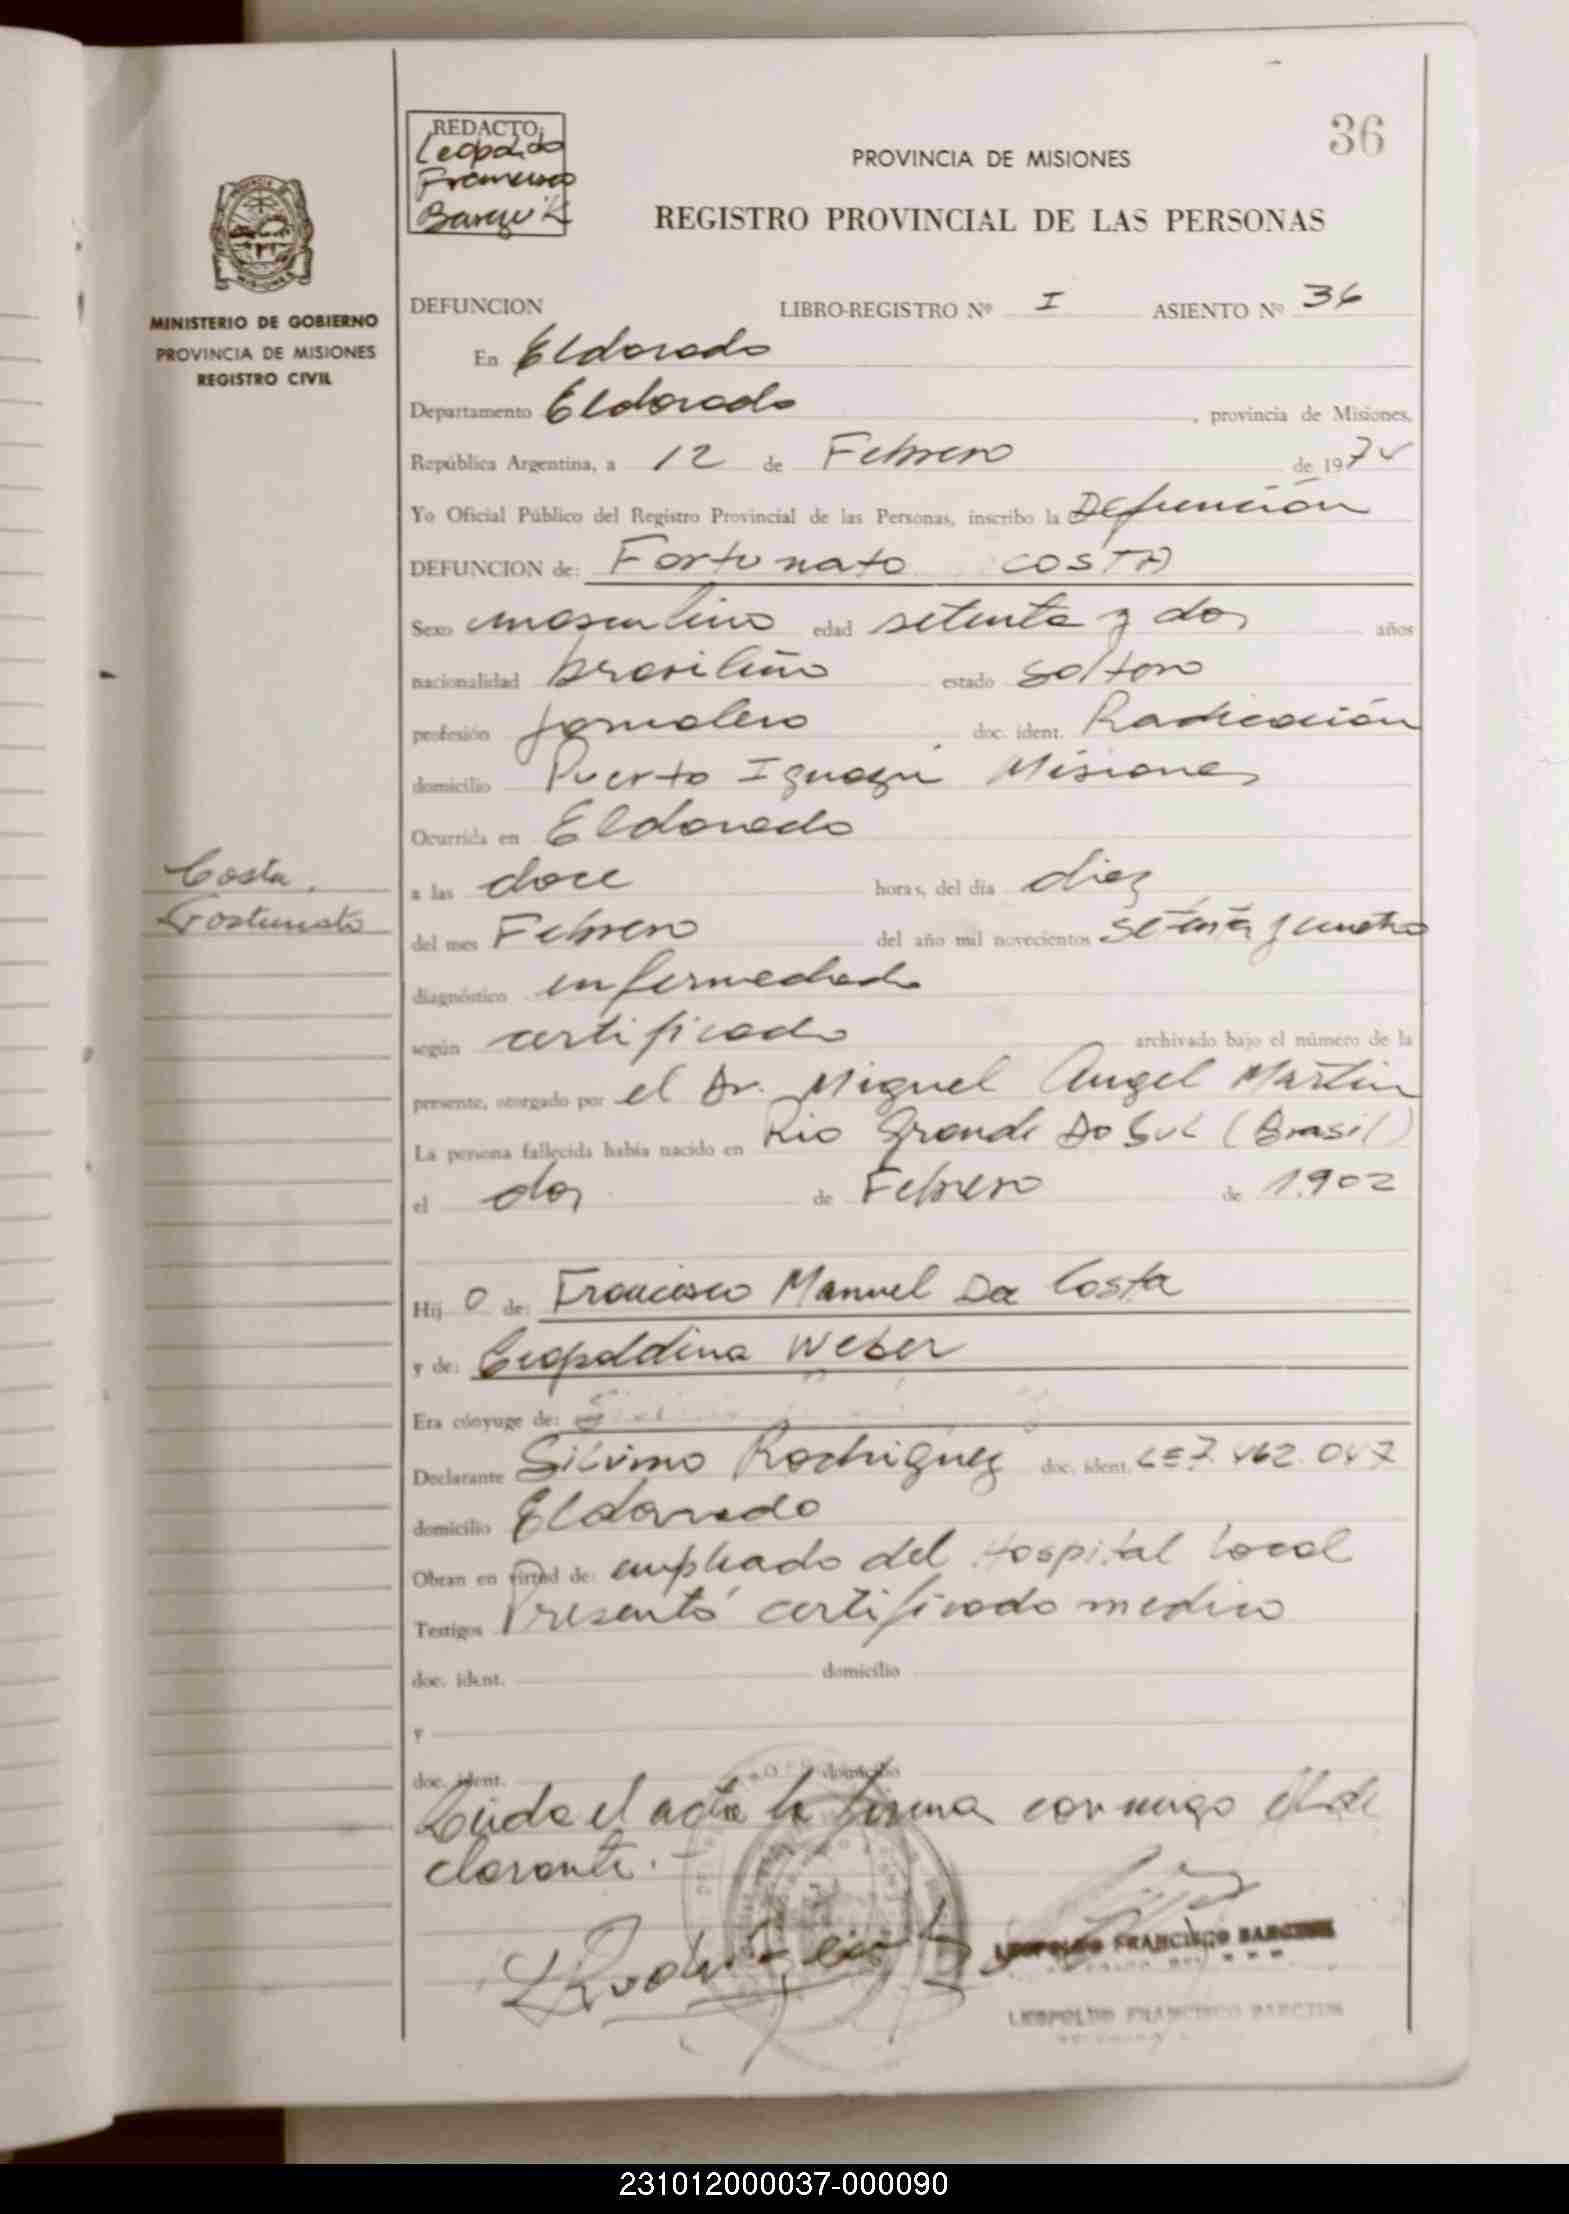 36
REDACTO:
Leopoldo
Francisco
PROVINCIA DE MISIONES
REGISTRO PROVINCIAL DE LAS PERSONAS
MINISTERIO DE GOBIERNO
PROVINCIA DE MISIONES
REGISTRO CIVIL
DEFUNCION LIBRO-REGISTRO Nº I ASIENTO Nº 36
En Eldorado
Departamento Eldorado, provincia de Misiones,
República Argentina, a 12 de Febrero de 1974
Yo Oficial Público del Registro Provincial de las Personas, inscribo la Defunción
DEFUNCION de: Fortunato COSTA
Sexo masculino edad setenta y dos años
nacionalidad brasileño estado soltero
profesión jornalero doc. ident. Radicación
domicilio Puerto Iguazú Misiones
Ocurrida en Eldorado
Costa,
Fortunato
a las doce horas, del día diez
del mes Febrero del año mil novecientos setenta y cuatro
diagnóstico enfermedad
según certificado archivado bajo el número de la
presente, otorgado por el Dr. Miguel Angel Martin
La persona fallecida había nacido en Rio Grande Do Sul (Brasil)
el dos de Febrero de 1.902
Hij o de: Francisco Manuel Da Costa
y de: Leopoldina Weber
Era cónyuge de:
Declarante Silvino Rodriguez doc. ident. LE 7.462.047
domicilio Eldorado
Obran en virtud de: empleado del Hospital Local
Testigos Presentó certificado medico
doc. ident. domicilio
y
doc. ident. domicilio
Leida el acta la firma conmigo el de
clarante.
LEOPOLDO FRANCISCO
LEOPOLDO FRANCISCO
231012000037-000090